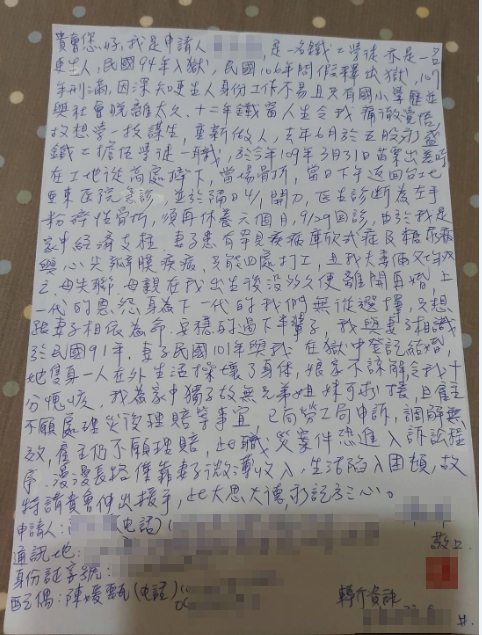 貴會您好,我是申請人 ,是一名鐵工學徒亦是一名
更生人,民國94年入獄,民國106年間假釋出獄,107
年刑滿,因深知更生人身份工作不易且只有國小學歷並
與社會脫離太久,十二年鐵窗人生令我痛徹覺悟
故想學一技謀生,重新做人,去年6月於五股永盛
鐵工擔任學徒一職,於今年109年3月31日苗栗出差時
在工地從高處摔下,當場骨折,當日下午返回台北
亞東醫院急診,並於隔日4/1開刀,医生診斷為左手
粉碎性骨折,須再休養六個月,9/29回診,由於我是
家中經濟支柱,妻子患有罕見疾病庫欣式症及糖尿病
與心尖瓣膜疾病,只能四處打工,且我夫妻倆父
母失聯,母親在我出生後沒多久便離開再婚,上
一代的恩怨身為下一代的我們無從選擇,只想
跟妻子相依為命,安穩的過下半輩子,我與妻子相識
於民國91年,妻子民國101年與我在獄中登記結婚,
她隻身一人在外生活操壞了身体,狠是不諒解,令我十
分愧疚,我為家中獨子故無兄弟姐妹可支援,且雇主
不願處理災後理賠等事宜,已向勞工局申訴,調解無
效,雇主仍不願理賠,此職災案件恐進入訴訟程
序,漫漫長路僅靠妻子微薄收入,生活陷入困頓,故
特請貴會伸出援手,此大恩大德,永記於心。
申請人: (电話)(
敬上
通訊地:
身份証字號:
配偶:陳媛 (电話)(
轉介資訊